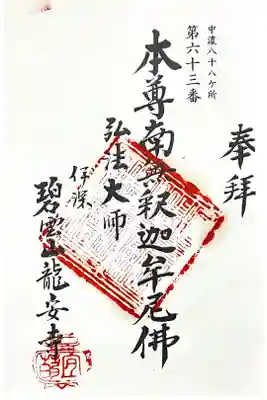 奉拝
中濃八十八ケ所
第六十三番
本尊南無釈迦牟尼佛
弘法大師
伊深
碧雲山龍安寺